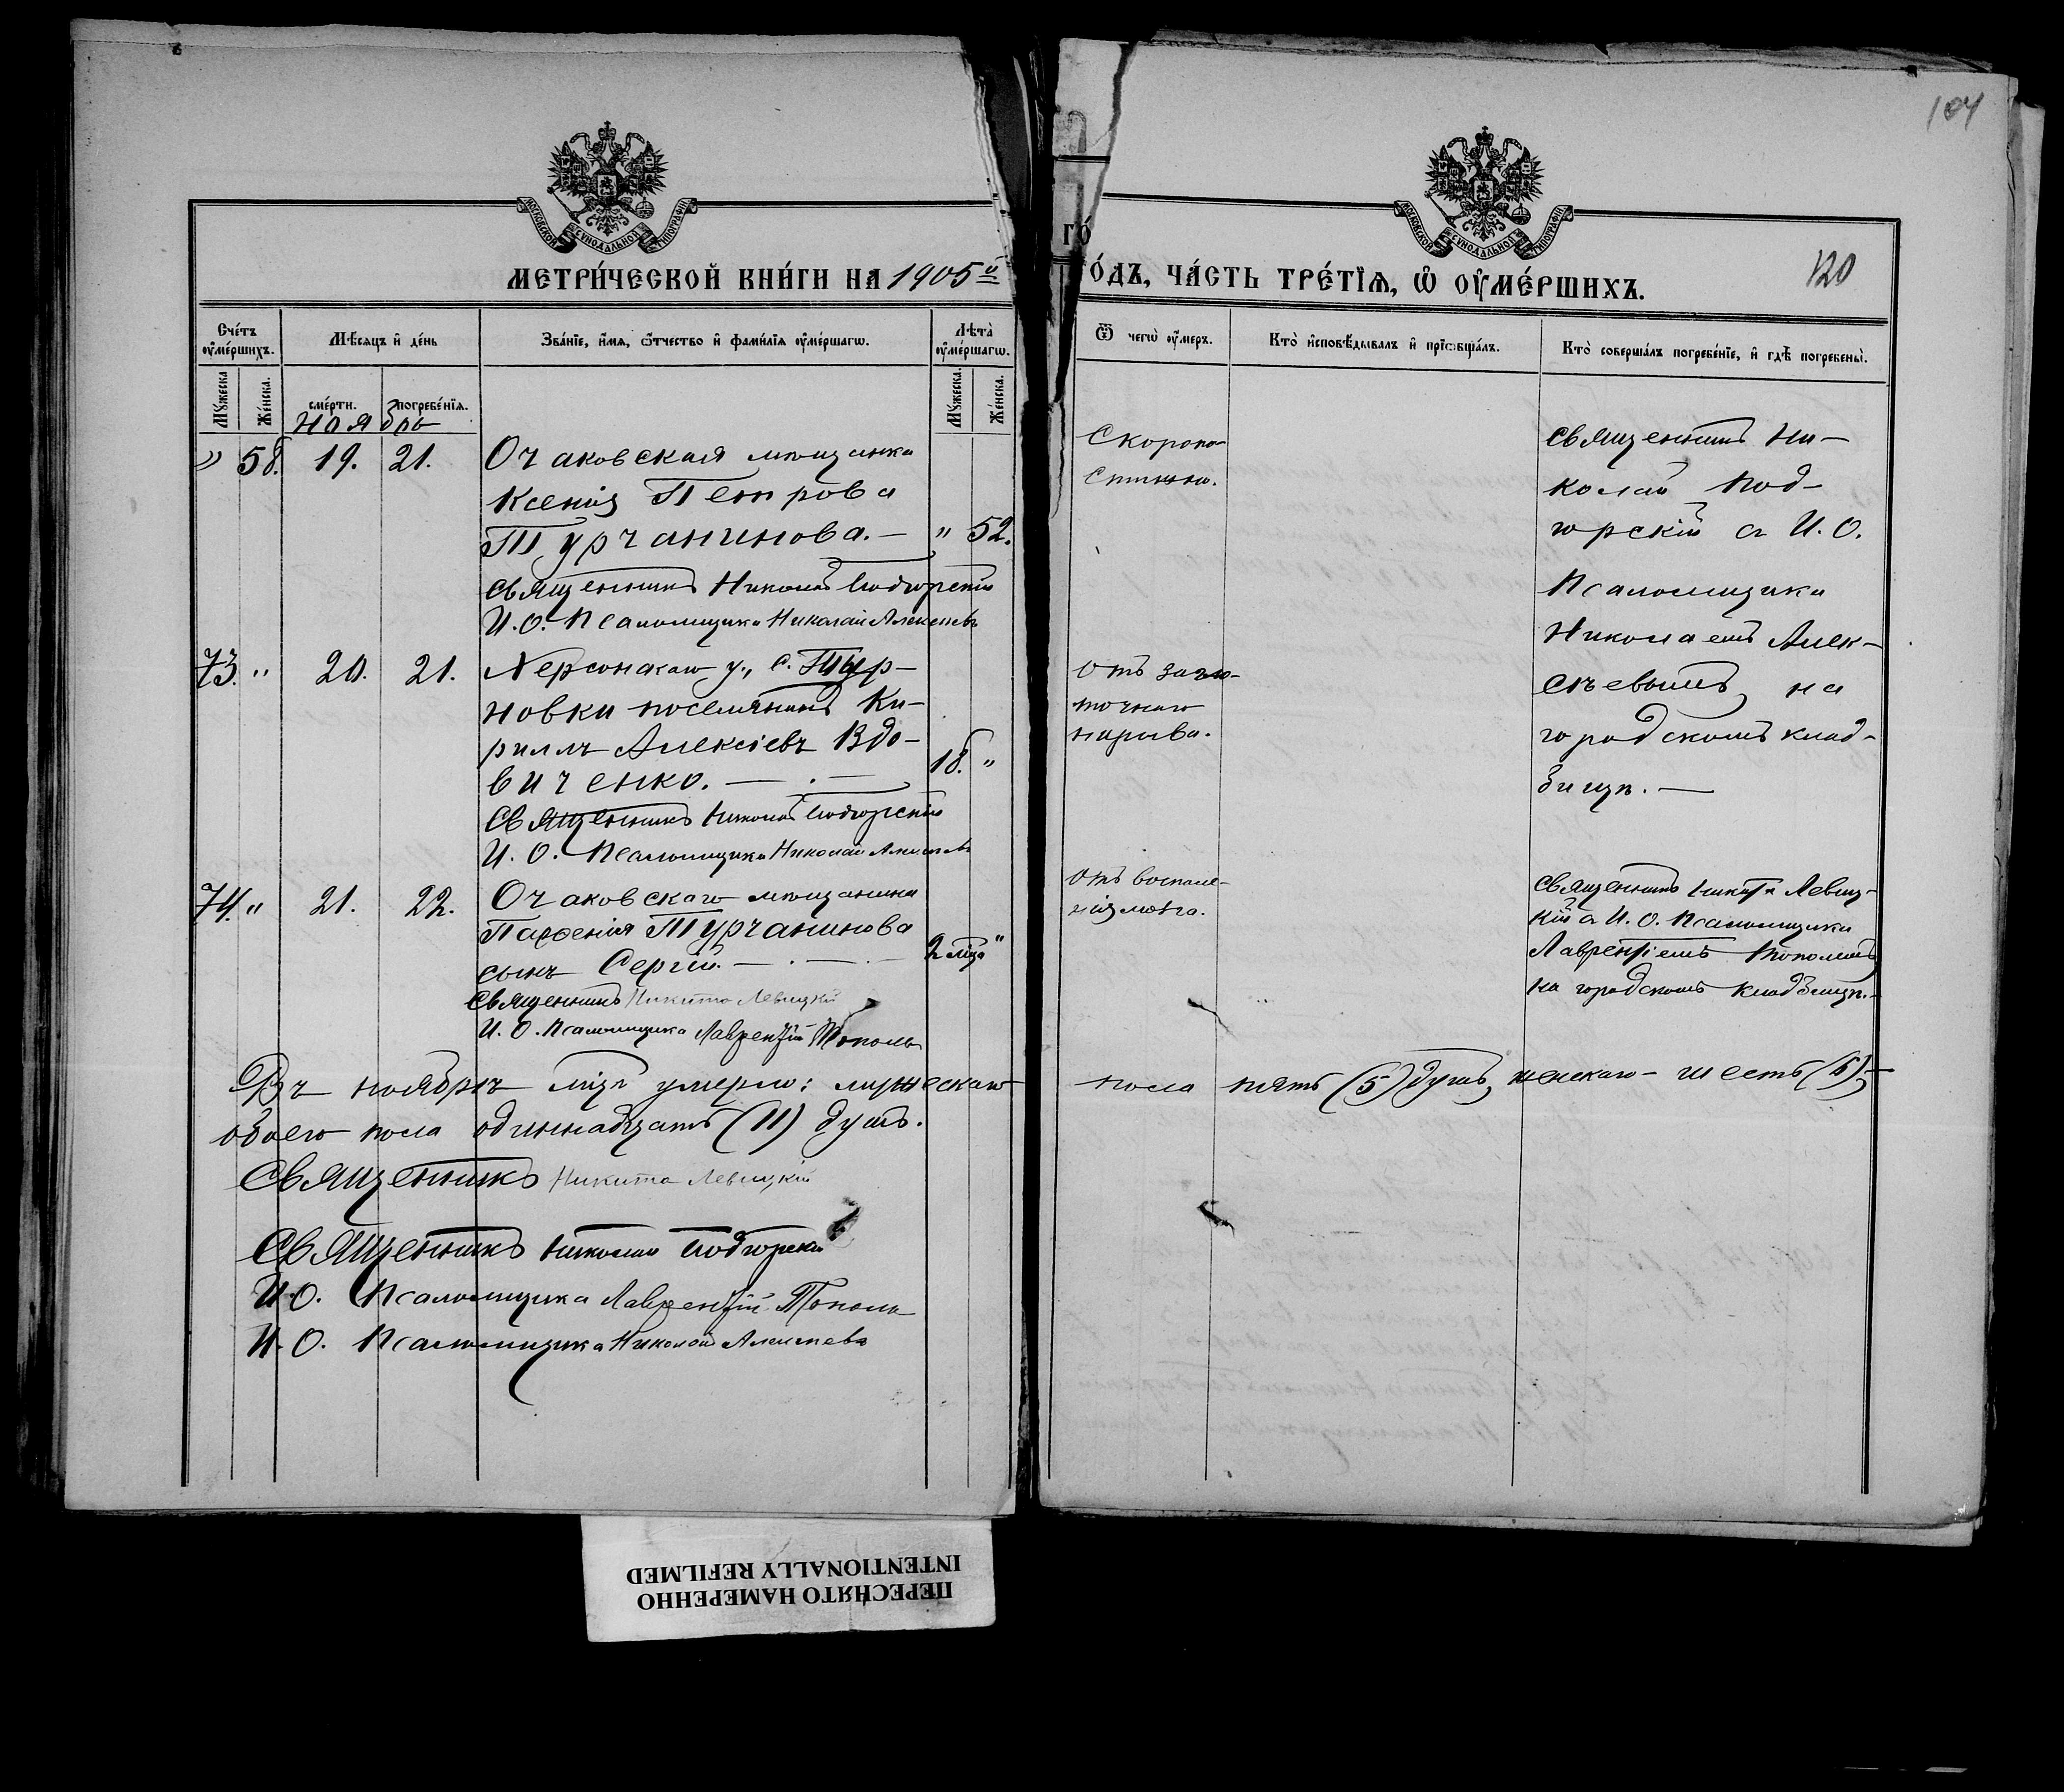 104
МОСКОВСКОЙ СУНОДАЛЬНОЙ ТИПОГРАФІИ
МОСКОВСКОЙ СУНОДАЛЬНОЙ ТИПОГРАФІИ
МЕТРИ́ЧЕСКОЙ КНИ́ГИ НА 1905й
ГО́
О́ДЪ, ЧА́СТЬ ТРЕ́ТЇѦ, Ѡ҆ ОУ҆МЕ́РШИХЪ.
120
Сче́тъ оу҆ме́ршихъ.
Мѣ́сяцъ и҆ де́нь
Зва́нїе, и҆́мя, ѻ҆́тчество и҆ фами́лїя оу҆ме́ршагѡ.
Лѣ́та оу҆ме́ршагѡ.
Ѿ чегѡ̀ оу҆́меръ.
Кто̀ и҆сповѣ́дывалъ и҆ прїѡбща́лъ.
Кто̀ соверша́лъ погребе́нїе, и҆ гдѣ̀ погребены̀.
Мꙋ́жеска
Же́нска.
сме́рти.
погребе́нїя.
Мꙋ́жеска.
Же́нска.
Ноябрь
" 58. 19. 21. Очаковская мѣщанка
Ксенія Петрова
Турчанинова. — " 52.
Священникъ Николай Подгорскій
И. О. Псаломщика Николай Алексѣевъ
Скоропо-
стижно.
Священникъ Ни-
колай Под-
горскій съ И. О.
Псаломщика
Николаемъ Алек-
сѣевымъ, на
городскомъ клад-
бищѣ. —
73. " 20. 21. Херсонскаго у., с. Тер-
новки поселянинъ Ки-
риллъ Алексіевъ Вдо-
виченко. — . — 18. "
Священникъ Николай Подгорскій
И. О. Псаломщика Николай Алексѣевъ
Отъ
нарыва.
74. " 21. 22. Очаковскаго мѣщанина
Парѳенія Турчанинова
сынъ Сергій. — . — . — 2 мца "
Священникъ Никита Левицкій
И. О. Псаломщика Лаврентій Тополь
Отъ воспале-
нія мозга.
Священникъ Никита Левиц-
кій съ И. О. Псаломщика
Лаврентіемъ Тополемъ
на городскомъ кладбищѣ. —
Въ ноябрѣ мцѣ умерло: мужескаго пола пять (5) душъ, женскаго — шесть (6), —
обоего пола одиннадцать (11) душъ.
Священникъ Никита Левицкій
Священникъ Николай Подгорскій
И. О. Псаломщика Лаврентій Тополь
И. О. Псаломщика Николай Алексѣевъ
ПЕРЕСНЯТО НАМЕРЕННО
INTENTIONALLY REFILMED